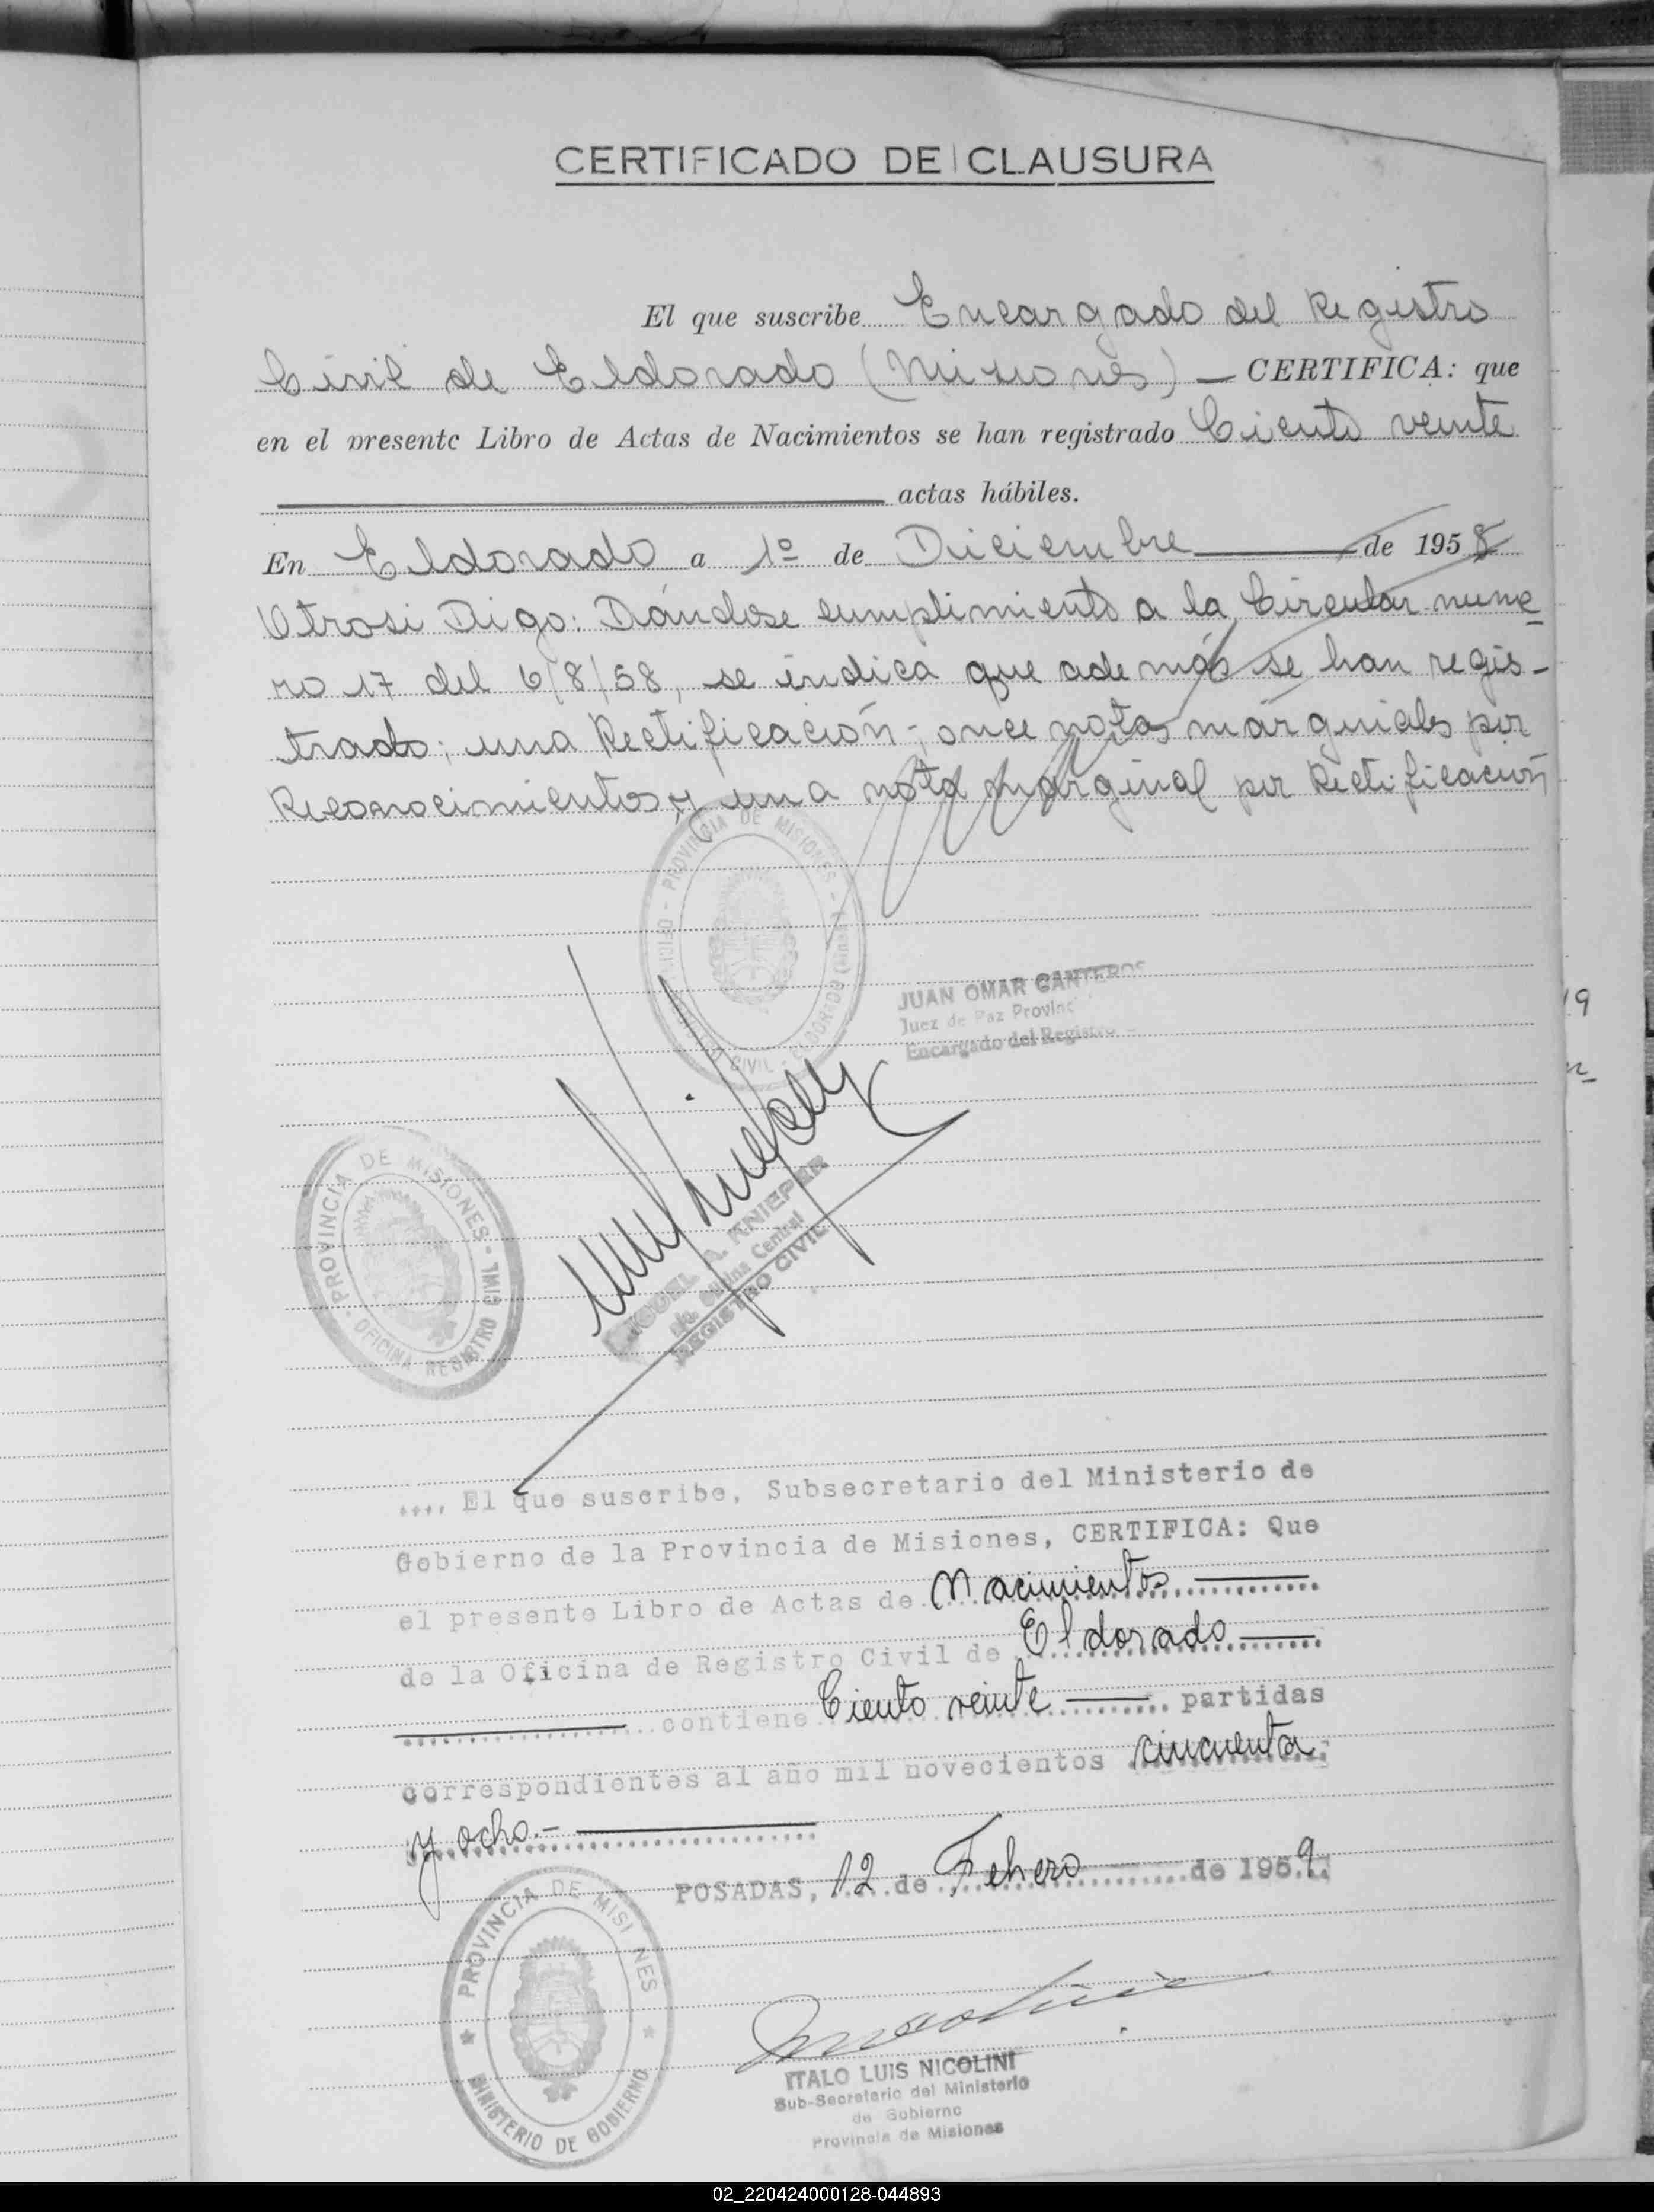 CERTIFICADO DE CLAUSURA
El que suscribe Encargado del Registro
Civil de Eldorado (Misiones) — CERTIFICA: que
en el presente Libro de Actas de Nacimientos se han registrado Ciento veinte
actas hábiles.
En Eldorado a 1º de Diciembre de 1958
Otrosi Digo: Dándose cumplimiento a la Circular nume
ro 17 del 6/8/58, se indica que además se han regis-
trado; una Rectificación; once notas marginales por
Reconocimientos y una nota marginal por Rectificación
PROVINCIA DE MISIONES - CIVIL - ELDORADO
JUAN OMAR CANTEROS
Juez de Paz
Encargado del Registro
PROVINCIA DE MISIONES - OFICINA REGISTRO CIVIL
MIGUEL A. KNIEPER
Oficina Central
REGISTRO CIVIL
.... El que suscribe, Subsecretario del Ministerio de
Gobierno de la Provincia de Misiones, CERTIFICA: Que
el presente Libro de Actas de Nacimientos
de la Oficina de Registro Civil de Eldorado
contiene Ciento veinte partidas
correspondientes al año mil novecientos cincuenta
y ocho.-
POSADAS, 12 de Febrero de 1959.
PROVINCIA DE MISIONES MINISTERIO DE GOBIERNO
ITALO LUIS NICOLINI
Sub-Secretario del Ministerio
de Gobierno
Provincia de Misiones
02_220424000128-044893